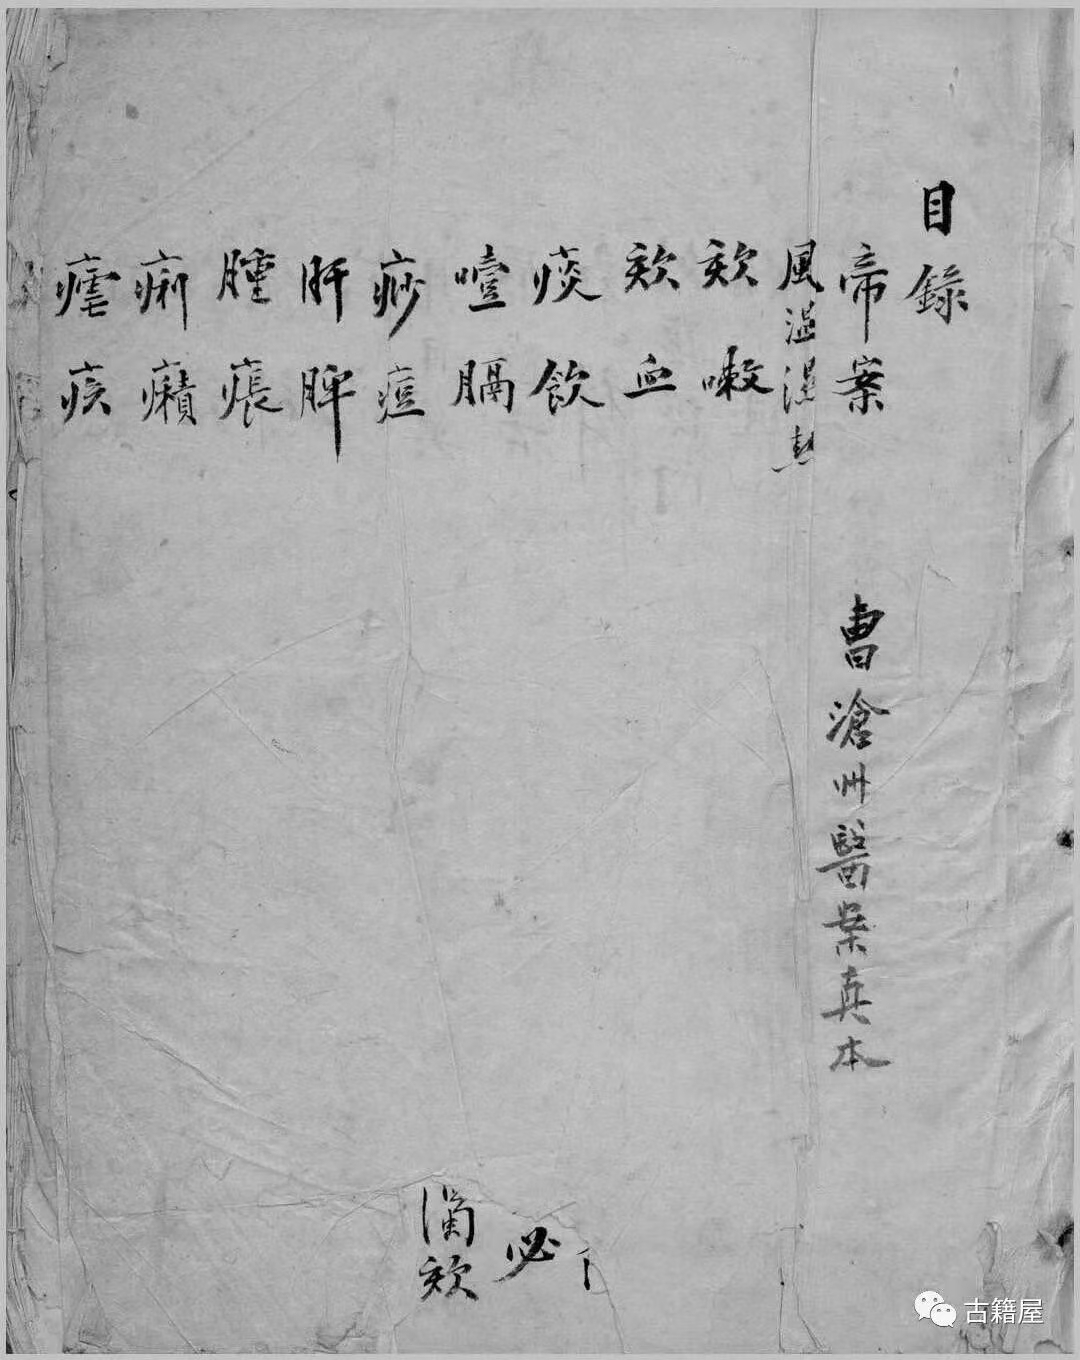 目錄
帝案
曹滄州醫案真本
風溫濕熱
欬嗽
欬血
痰飲
噎膈
痧痘
肝脾
腫痕
痢癪
瘧疾
必
欬
古籍屋